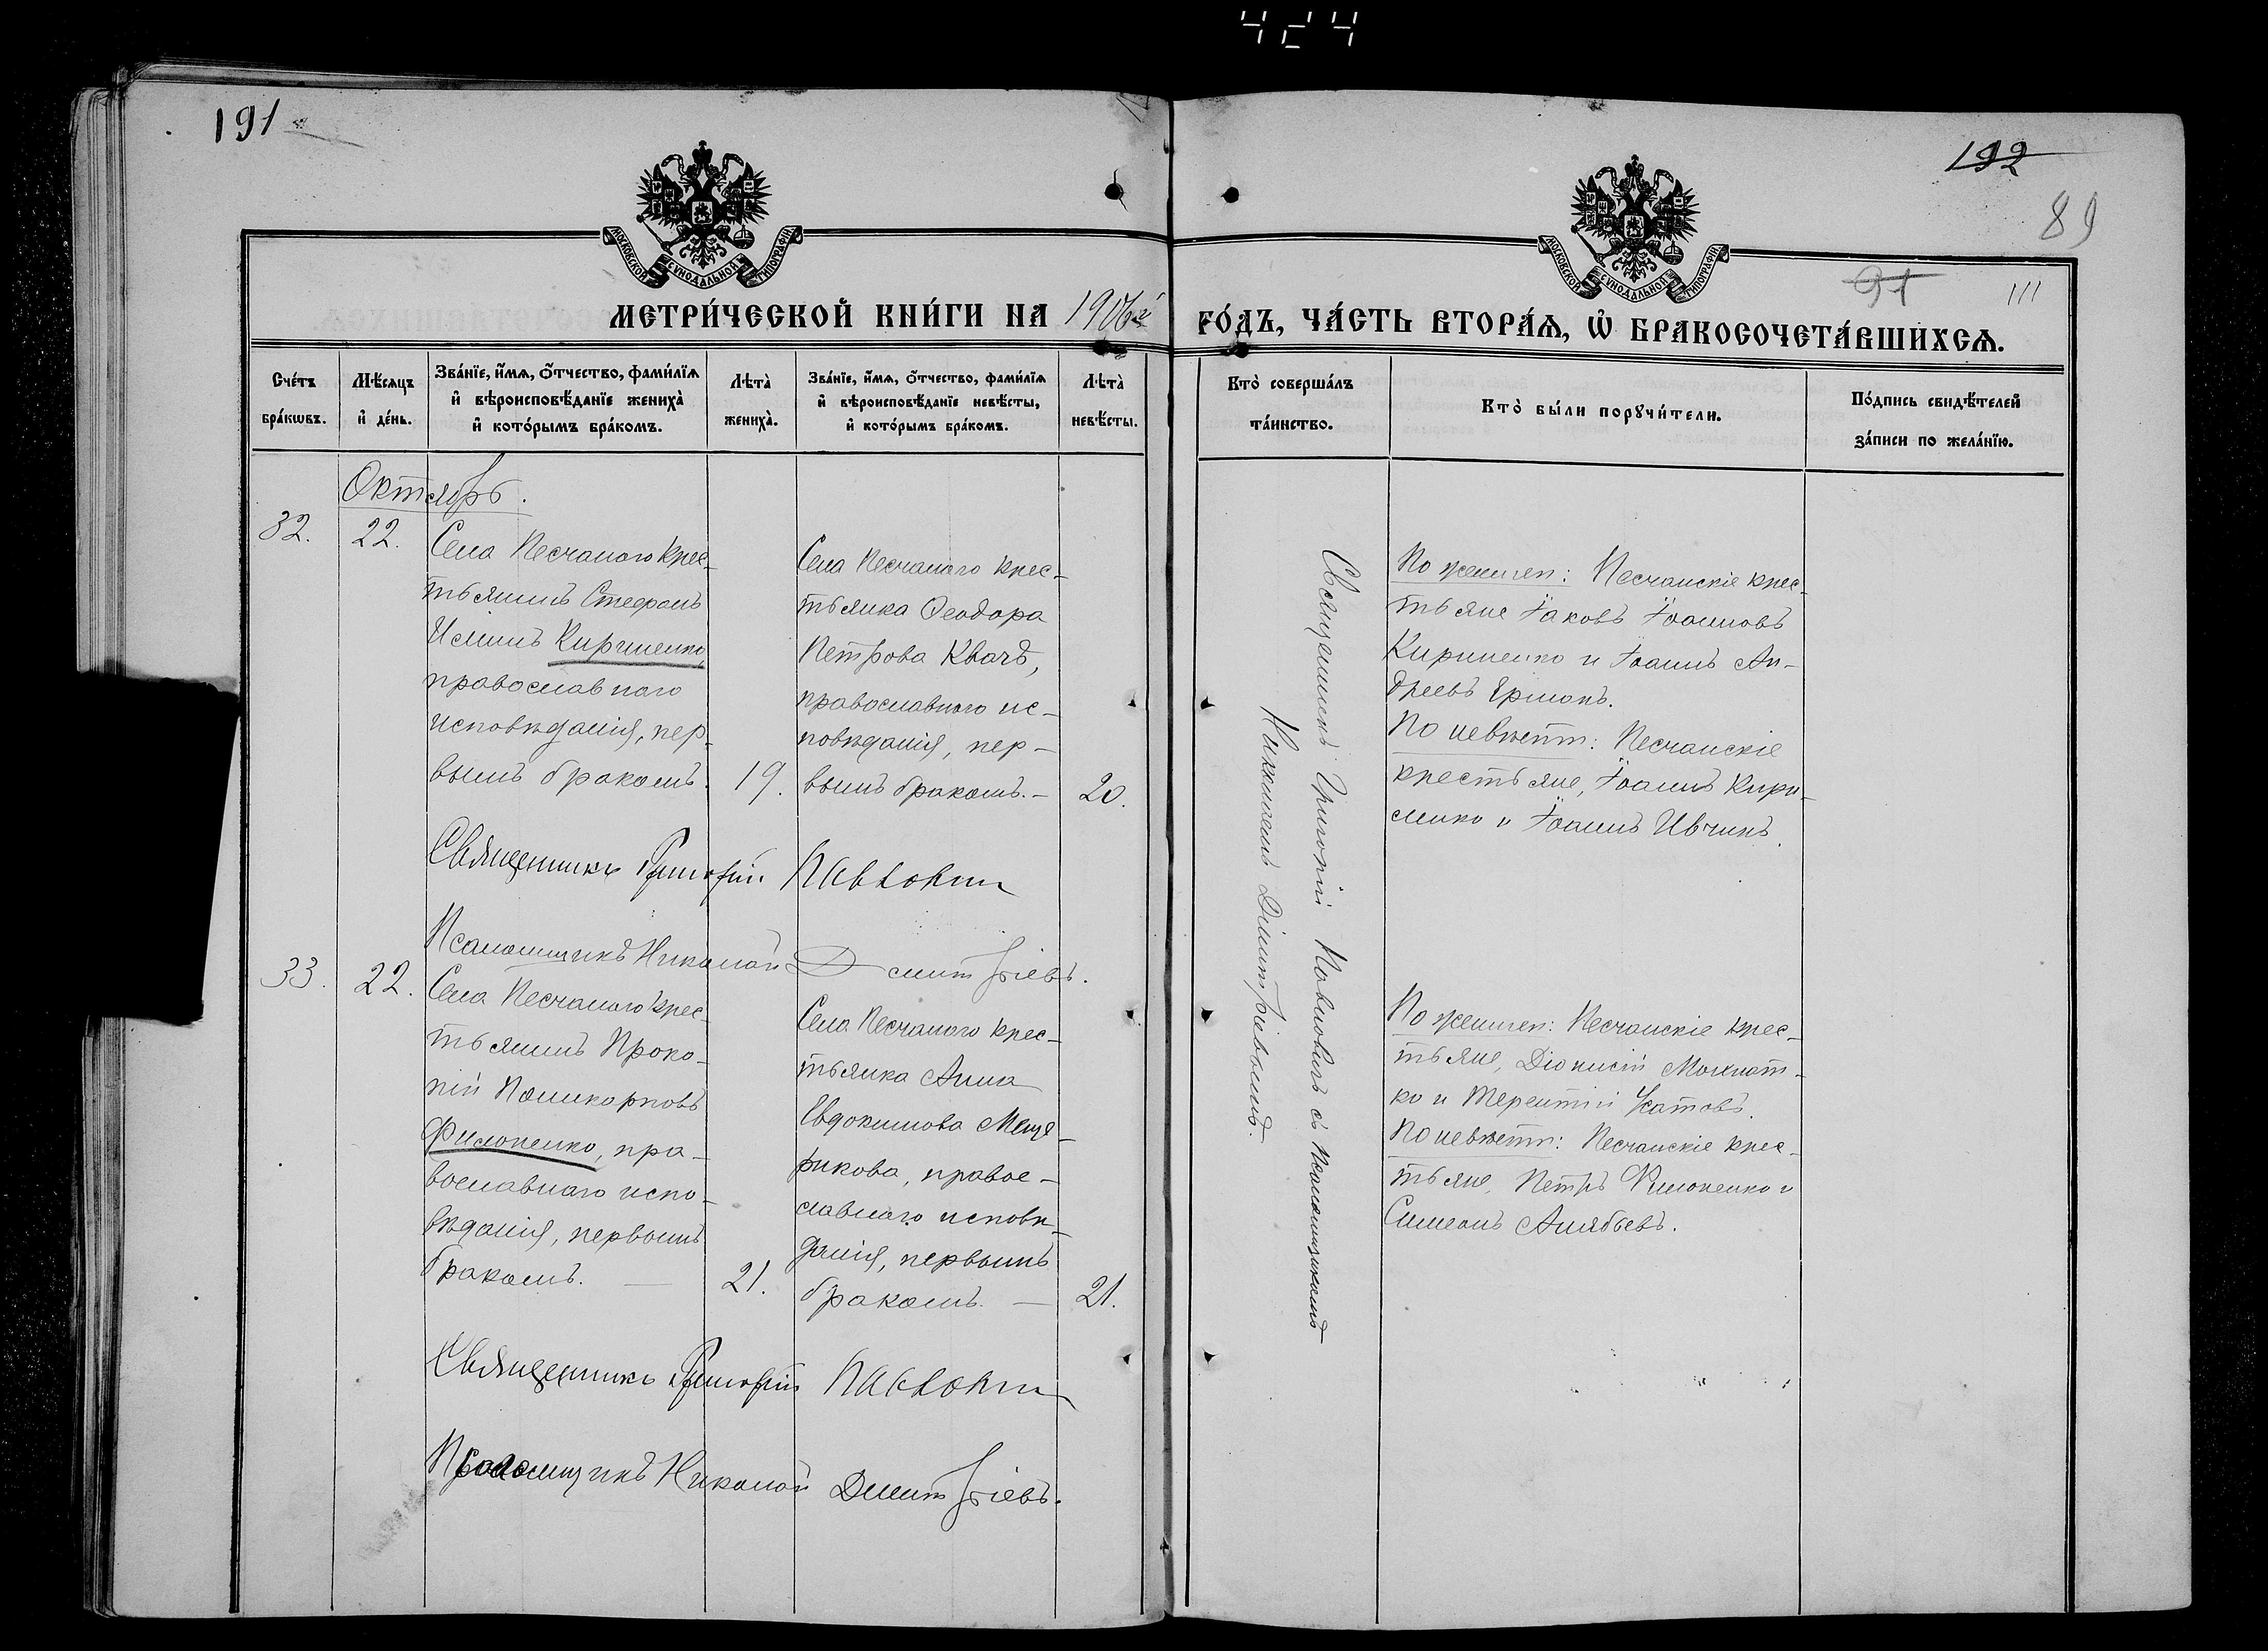 424
191
192
89
91
111
МОСКОВСКОЙ СѴНОДАЛЬНОЙ ТИПОГРАФІИ
МОСКОВСКОЙ СѴНОДАЛЬНОЙ ТИПОГРАФІИ
МЕТРИ́ЧЕСКОЙ КНИ́ГИ НА 1906й
ГО́ДЪ, ЧА́СТЬ ВТОРА́Ѧ, Ѡ҆ БРАКОСОЧЕТА́ВШИХСѦ.
Сче́тъ
бра́кѡвъ.
Мѣ́сѧцъ
и҆ де́нь.
Зва́нїе, и҆́мѧ, ѻ҆́тчество, фами́лїѧ
и҆ вѣроисповѣ́данїе жениха̀
и҆ кото́рымъ бра́комъ.
Лѣта̀
жениха̀.
Зва́нїе, и҆́мѧ, ѻ҆́тчество, фами́лїѧ
и҆ вѣроисповѣ́данїе невѣ́сты,
и҆ кото́рымъ бра́комъ.
Лѣта̀
невѣ́сты.
Кто̀ соверша́лъ
та́инство.
Кто̀ бы́ли порꙋчи́тели.
По́дпись свидѣ́телей
за́писи по жела́нїю.
Октябрь.
32.
22.
Села Песчаного крес-
тьянинъ Стефанъ
Кириченко,
православнаго
исповѣданія, пер-
вымъ бракомъ.
19.
Села Песчаного крес-
тьянка Ѳеодора
Петрова Квачъ,
православного ис-
повѣданія, пер-
вымъ бракомъ. —
20.
Священникъ Григорій Павловичъ съ псаломщикомъ
Николаемъ Димитріевымъ.
По женихѣ: Песчанскіе крес-
тьяне Іаковъ Іоанновъ
Кириченко и Іоаннъ Ан-
дреевъ
По невѣстѣ: Песчанскіе
крестьяне, Іоаннъ Кири-
ченко и Іоаннъ Ивчикъ.
Священникъ Григорій Павловичъ
Псаломщикъ Николай Димитріевъ.
33.
22.
Села Песчаного крес-
тьянинъ Проко-
пій Поликарповъ
Филоненко, пра-
вославнаго испо-
вѣданія, первымъ
бракомъ. —
21.
Села Песчаного крес-
тьянка Анна
Евдокимова Меще-
рикова, правос-
лавнаго исповѣ-
данія, первымъ
бракомъ. —
21.
По женихѣ: Песчанскіе крес-
тьяне, Діонисій Мохнат-
ко и Терентій Усатовъ.
По невѣстѣ: Песчанскіе крес-
тьяне, Петръ Филоненко и
Симеонъ Алябьевъ.
Священникъ Григорій Павловичъ
Псаломщикъ Николай Димитріевъ.